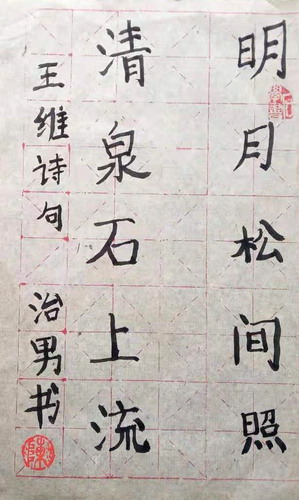 明月松间照
清泉石上流
王维诗句 治男书